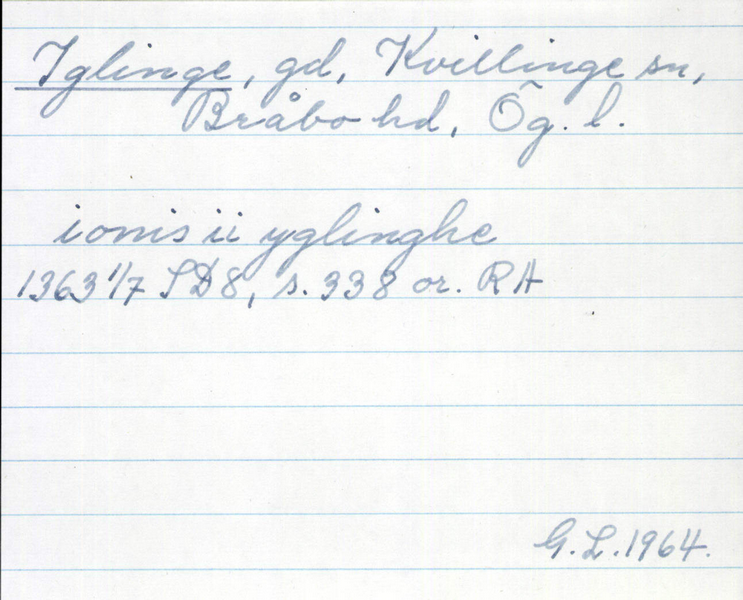 Iglinge, gd, Kvillinge sn,
Bråbo hd, Ög. l.
ionis ii yglinghe
1363 1/7 SD8, s. 338 or. RA
G.L. 1964.